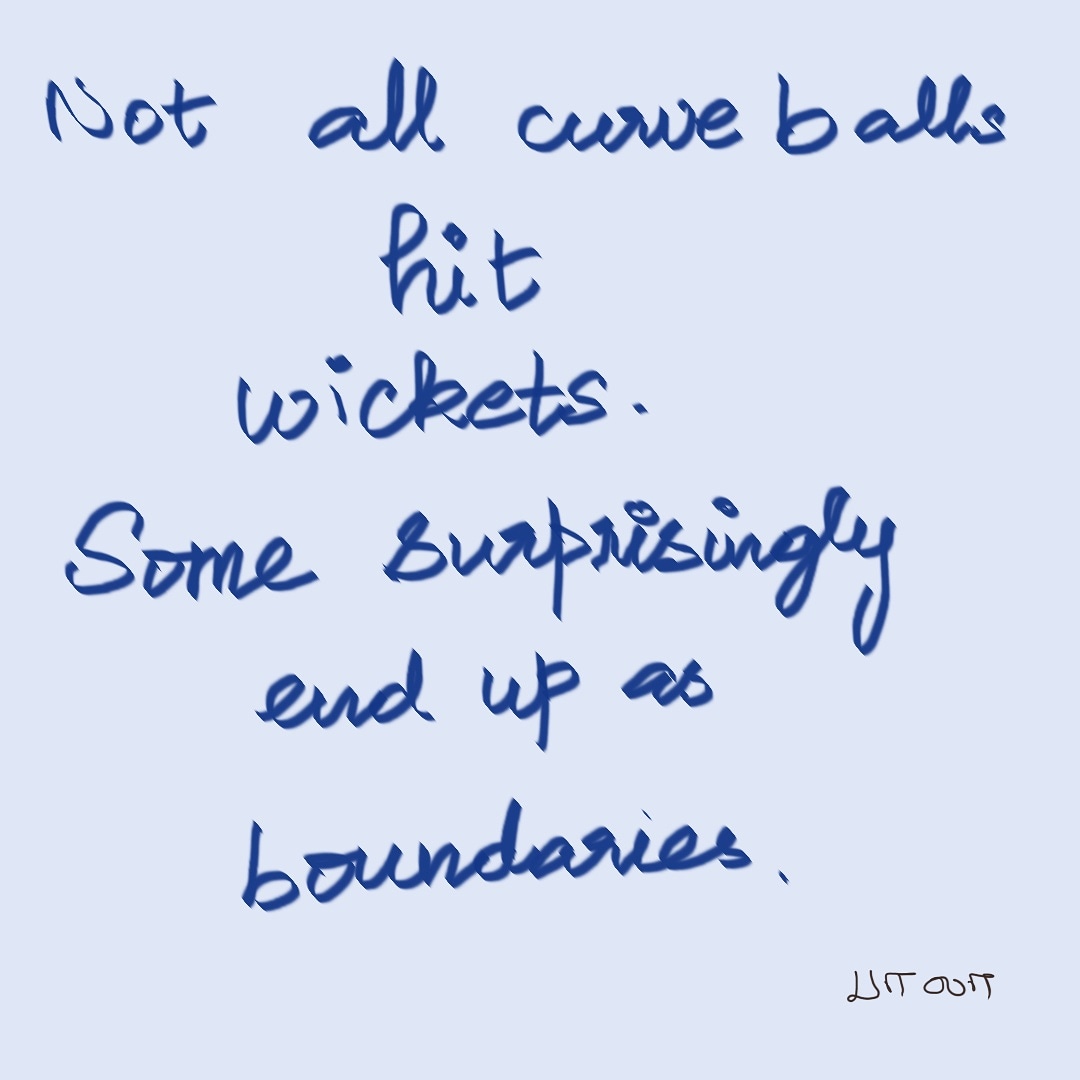 Not all curve balls
hit
wickets.
Some surprisingly
end up as
boundaries.